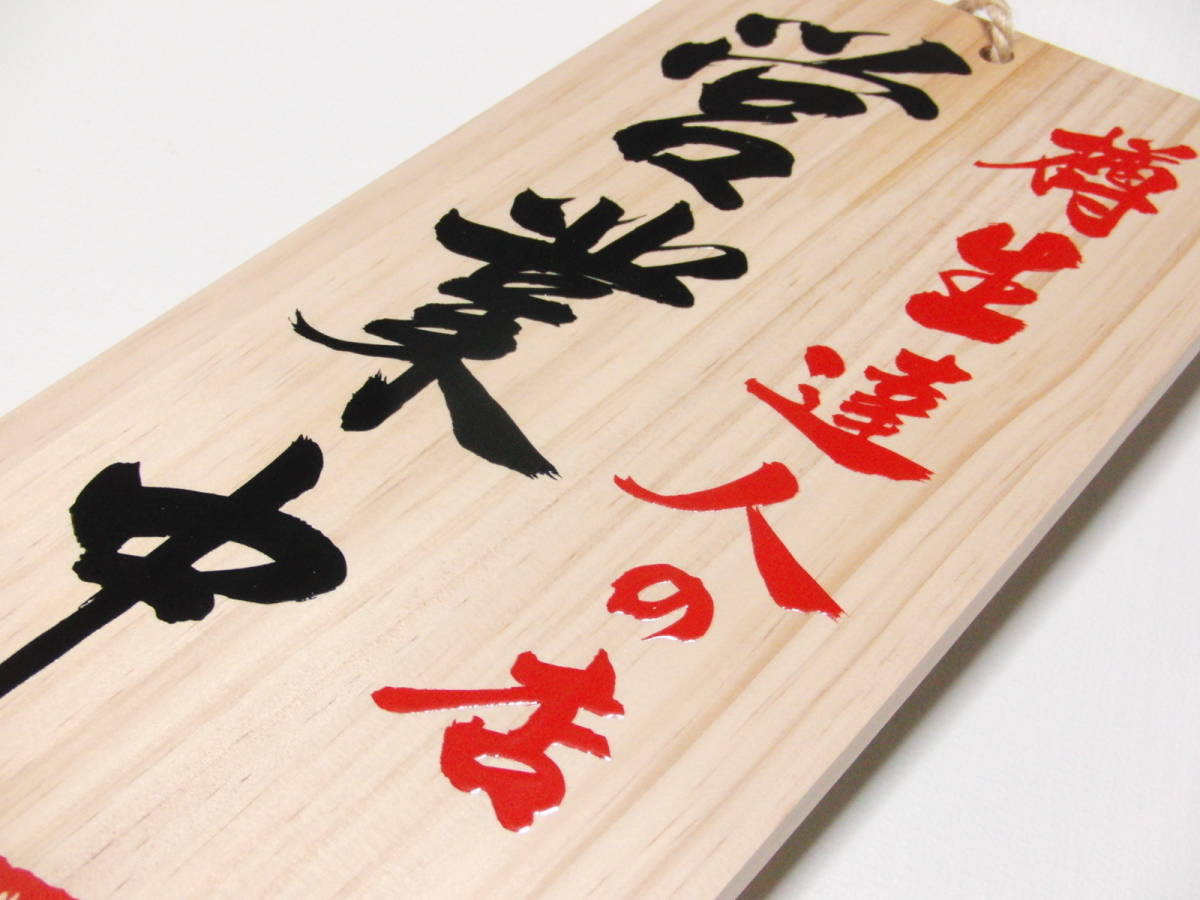 樽生達人の店
営業中